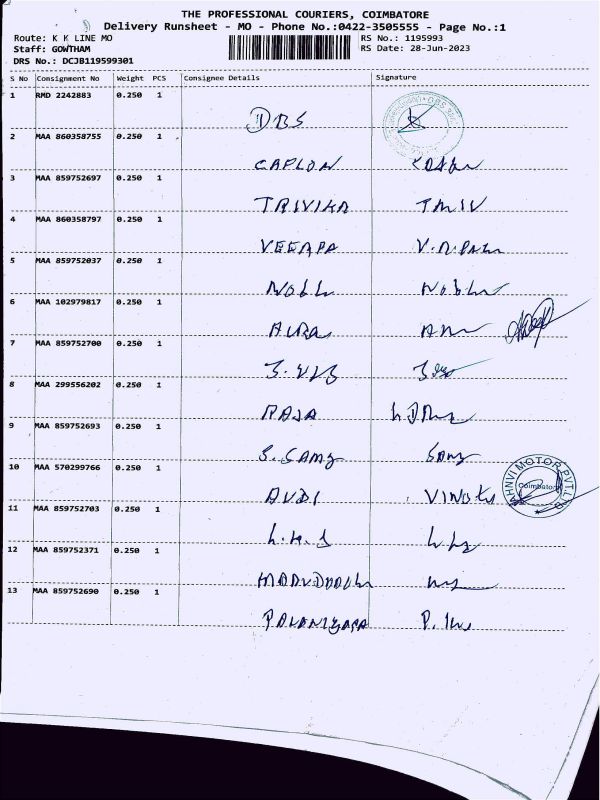 THE PROFESSIONAL COURIERS, COIMBATORE
Delivery Runsheet - MO - Phone No.:0422-3505555 - Page No.:1
Route: K K LINE MO
RS No.: 1195993
Staff: GOWTHAM
RS Date: 28-Jun-2023
DRS No.: DCJB119599301
S No Consignment No Weight PCS Consignee Details Signature
1 RMD 2242883 0.250 1
DBS
2 MAA 860358755 0.250 1
CAPLON
3 MAA 859752697 0.250 1
TRIVIKA
4 MAA 860358797 0.250 1
VEERPA
5 MAA 859752037 0.250 1
Noble Noble
6 MAA 102979817 0.250 1
AURA
7 MAA 859752700 0.250 1
8 MAA 299556202 0.250 1
RAJA
9 MAA 859752693 0.250 1
S. SAMY SAMY
10 MAA 570299766 0.250 1
AUDI VINOTH
MOTOR PVT LTD
Coimbatore
11 MAA 859752703 0.250 1
12 MAA 859752371 0.250 1
13 MAA 859752690 0.250 1